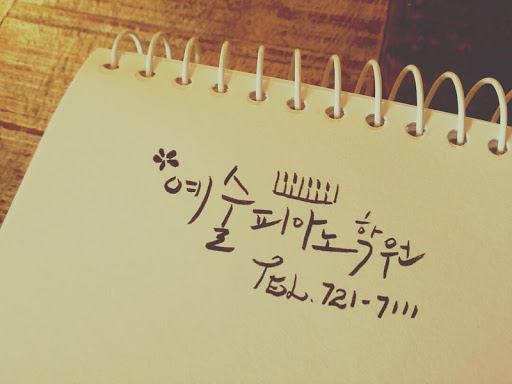 예술피아노학원
TEL. 721-7111